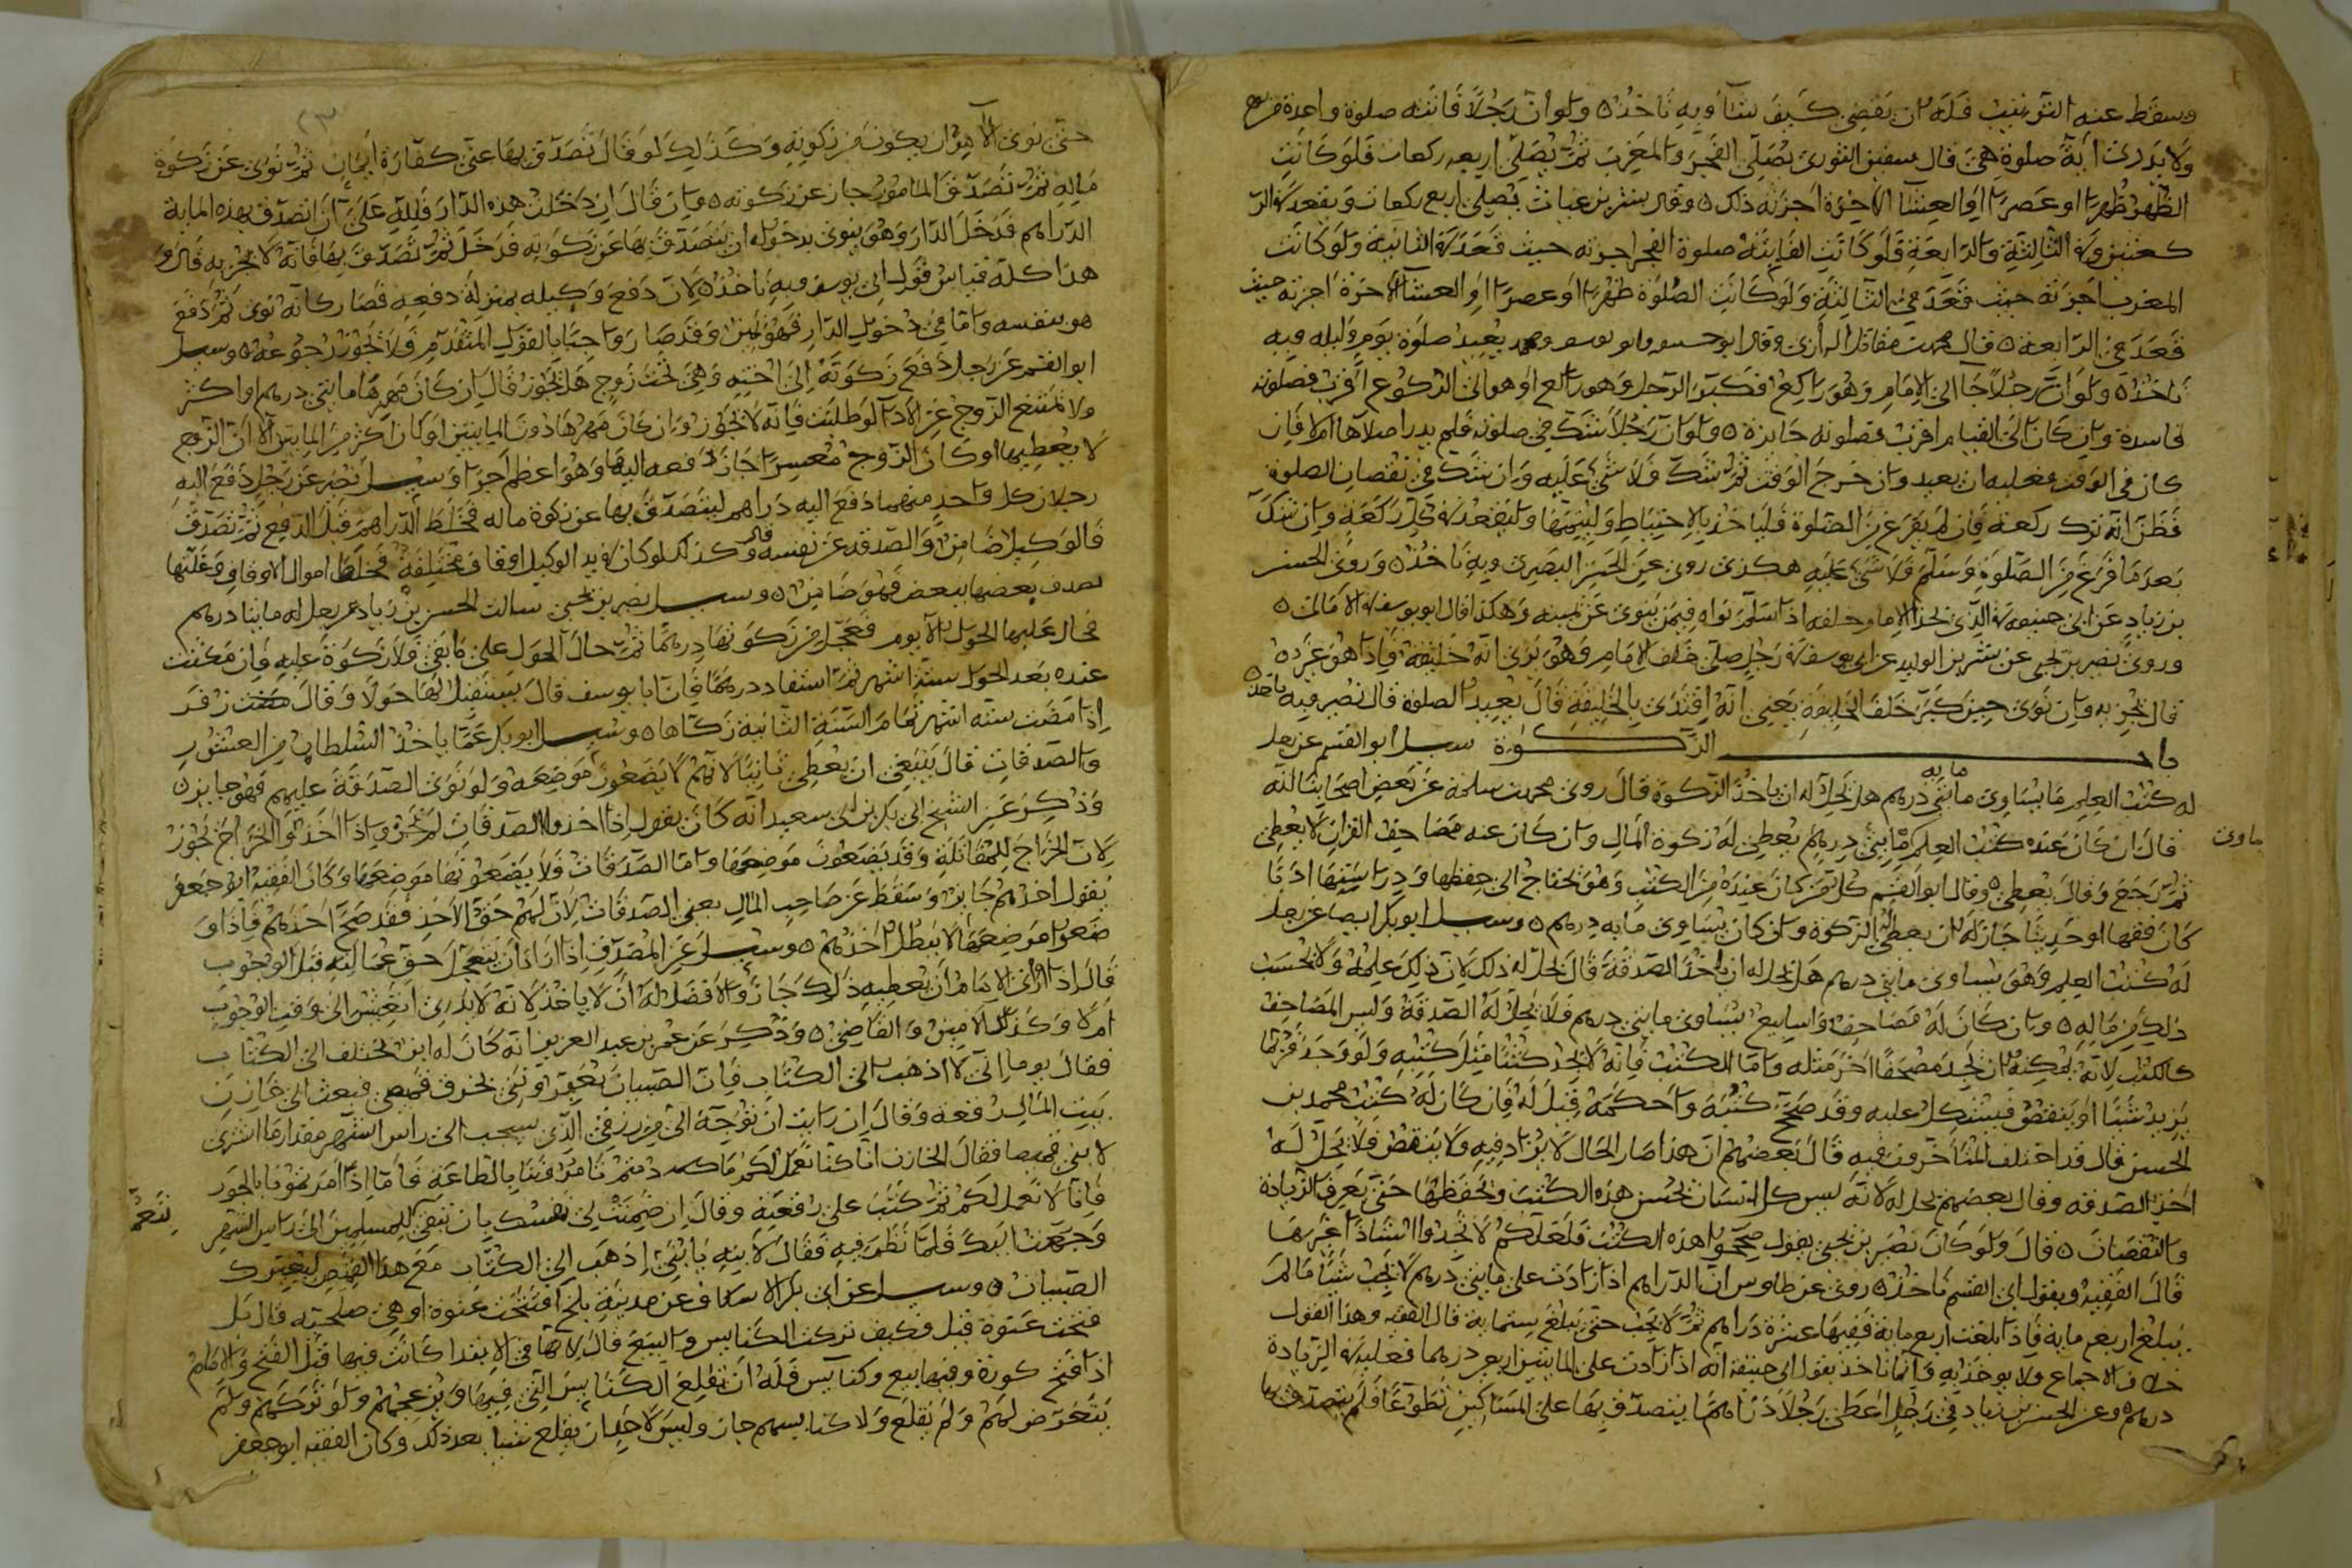 وسقط عنه الترتيب فله ان يقضي كيف شآء وبه ناخذ ٥ ولو ان رجلا فاتته صلوة واحدة
ولا يدري اية صلوة هي قال سفين الثوري يصلي الفجر والمغرب ثم يصلي اربع ركعات فلو كانت
الظهر ظهرا او عصرا او العشا الاخرة اجزته ذلك ٥ وقال بشر بن غياث يصلي اربع ركعات ويقعد في
ركعتين وفي الثالثة والرابعة فلو كانت الفايتة صلوة الفجر اجزته حيث قعد في الثانية ولو كانت
المغرب اجزته حيث قعد في الثالثة ولو كانت الصلوة ظهرا او عصرا او العشآ الاخرة اجزته حيث
قعد في الرابعة ٥ قال محمد بن مقاتل الرازي وقال ابو حنيفه وابو يوسف ومحمد يعيد صلوة يوم وليله وبه
ناخذ ٥ ولو ان رجلا جآ الى الامام وهو راكع فكبر الرجل وهو راكع او هو الى الركوع اقرب فصلوته
فاسدة وان كان الى القيام اقرب فصلوته جايزة ٥ ولو ان رجلا شك في صلوته فلم يدر اصلاها ام لا فان
كان في الوقت فعليه ان يعيد وان خرج الوقت ثم شك فلا شي عليه وان شك في نقصان الصلوة
فظن انه ترك ركعة فان لم يفرغ من الصلوة فلياخذ بالاحتياط وليتمها وليقعد في كل ركعة وان شك
بعد ما فرغ من الصلوة وسلم فلا شي عليه هكذى روي عن الحسن البصري وبه ناخذ ٥ وروى الحسن
بن زياد عن ابي حنيفه في الذي بحذا الامام وخلفه اذا سلم نواه فيمن ينوي عن يمينه وهكذا قال ابو يوسف في الامالي ٥
وروى نصير بن يحيى عن بشر بن الوليد عن ابي يوسف في رجل صلى خلف الامام وهو يرى انه خليفة فاذا هو غيره
قال يجزيه وان نوى حين كبر خلف الخليفة يعني انه اقتدى بالخليفة قال يعيد الصلوة قال نصير وبه ناخذ ٥
باب الزكوة سيل ابو القسم عن رجل
له كتب العلم ما يساوي مايتي درهم هل يحل له ان ياخذ الزكوة قال روى محمد بن سلمة عن بعض اصحابنا انه
قال ان كان عنده كتب العلم مايتي درهم يعطى له زكوة المال وان كان عنه مصاحف القران لا يعطى
ثم رجع وقال يعطى ٥ وقال ابو القسم كل من كان عنده من الكتب وهو يحتاج الى حفظها ودراستها اذا
كان فقها او حديثا جاز له ان يعطى اليه الزكوة وان كان يساوي مايه درهم ٥ وسيل ابو بكر ايضا عن رجل
له كتب العلم وهو يساوي مايتي درهم هل يحل له ان ياخذ الصدقة قال يحل له ذلك لان ذلك علمه ولا يحسب
ذلك من ماله ٥ وان كان له مصاحف واسابيع يساوي مايتي درهم فلا يحل له الصدقة وليس المصاحف
كالكتب لانه يمكنه ان يجد مصحفا اخر مثله واما الكتب فانه لا يجد كتبا مثل كتبه ولو وجد فربما
يزيد شيا او ينقص فيشكل عليه وقد صحح كتبه واحكمه قيل له فان كان له كتب محمد بن
الحسن قال قد اختلف المتاخرون فيه قال بعضهم ان هذا صار الحال لا يزاد فيه ولا ينقص فلا يحل له
اخذ الصدقه وقال بعضهم يحل له لانه ليس كل انسان يحسن هذه الكتب ويحفظها حتى يعرف الزيادة
والنقصان ٥ قال ولو كان نصير بن يحيى يقول صححوا هذه الكتب فلعلكم لا تجدوا استاذا غيرها
قال الفقيه وبقول ابي القسم ناخذ ٥ روي عن طاوس ان الدراهم اذا زادت على مايتي درهم لا يجب شيا ما لم
يبلغ اربع ماية فاذا بلغت اربع ماية ففيها عشرة دراهم ثم لا يجب حتى يبلغ ستماية قال الفقيه وهذا القول
خلاف الاجماع ولا يوخذ به وانما ناخذ بقول ابي حنيفة انه اذا زادت على المايتين اربعين درهما فعليه في الزيادة
درهم ٥ وعن الحسن بن زياد في رجل اعطى رجلا دراهم ان يتصدق بها على المساكين تطوعا فلم يتصدق بها
مايه
ماوى
حتى نوى الآمر ان يكون من زكوته وكذلك لو قال تصدق بها عني كفارة ايمان ثم نوى عن زكوة
ماله ثم تصدق المامور جاز عن زكوته ٥ وان قال ان دخلت هذه الدار فلله علي ان اتصدق بهذه الماية
الدراهم فدخل الدار وهو ينوي بدخوله ان يتصدق بها عن زكوته فدخل ثم تصدق بها فانه لا يجزيه قال و
هذا كله قياس قول ابي يوسف وبه ناخذ ٥ لان دفع وكيله بمنزلة دفعه فصار كانه نوى ثم دفع
هو بنفسه واما في دخول الدار فهو يمين وقد صار واجبا بالقول المتقدم فلا يجوز رجوعه ٥ وسيل
ابو القسم عن رجل دفع زكوته الى اخته وهي تحت زوج هل يجوز قال ان كان مهرها مايتي درهم او اكثر
ولا يمتنع الزوج عن الادآ لو طلبت فانه لا يجوز وان كان مهرها دون المايتين او كان اكثر من المايتين الا ان الزوج
لا يعطيها او كان الزوج معسرا جاز دفعه اليها وهو اعظم اجرا وسيل نصير عن رجل دفع اليه
رجلان كل واحد منهما دفع اليه دراهم ليتصدق بها عن زكوة ماله فخلط الدراهم قبل الدفع ثم تصدق
فالوكيل ضامن والصدقه عن نفسه قال وكذلك لو كان في يد الوكيل اوقاف مختلفة فخلط اموال الاوقاف وغلتها
بعضها ببعض فهو ضامن ٥ وسيل نصير بن يحيى سالت الحسن بن زياد عن رجل له مايتا درهم
فحال عليها الحول الا يوم فعجل من زكوتها درهما ثم حال الحول على ما بقي فلا زكوة عليه فان مكثت
عنده بعد الحول ستة اشهر ثم استفاد درهما فان ابا يوسف قال يستقبل بها حولا وقال زفر
اذا مضت ستة اشهر تمام السنة الثانية زكاها ٥ وسيل ابو بكر عما ياخذ السلطان من العشور
والصدقات قال ينبغي ان يعطي ثانيا لانهم لا يضعون موضعه ولو نوى الصدقة عليهم فهو جايز ٥
وذكر عن الشيخ ابي بكر بن ابي سعيد انه كان يقول اذا اخذوا الصدقات لم يجز واذا اخذوا الخراج يجوز
لان الخراج للمقاتلة وقد يضعون موضعها واما الصدقات فلا يضعونها موضعها وكان الفقيه ابو جعفر
يقول اخذهم جايز وسقط عن صاحب المال يعني الصدقات لان لهم حق الاخذ فقد صح اخذهم فاذا و
ضعوا موضعها لا يبطل اخذهم ٥ وسيل عن المصدق اذا اراد ان يتعجل حق عمالته قبل الوجوب
قال اذا راى الامام ان يعطيه ذلك جاز والافضل له ان لا ياخذ لانه لا يدري ايعيش الى وقت الوجوب
ام لا وكذلك الامين والقاضي ٥ وذكر عن عمر بن عبد العزيز انه كان له ابن يختلف الى الكتاب
فقال يوما اني لا اذهب الى الكتاب فان الصبيان يعيروني بخرق قميصي فبعث الى خازن
بيت المال رقعة وقال ان رايت ان توجه الي من رزقي الذي يجب الى راس الشهر مقدار ما اشتري
لابني قميصا فقال الخازن انا كنا نعمل لكم ما دمتم تامروننا بالطاعة فاما اذا امرتمونا بالجور
فانا لا نعمل لكم ثم كتب على رقعته وقال ان ضمنت لي نفسك بان تبقى للمسلمين الى راس الشهر
وجهت اليك فلما نظر فيه فقال لابنه يا بني اذهب الى الكتاب مع هذا القميص ليعيرك
الصبيان ٥ وسيل عن ابي بكر الاسكاف عن مدينة بلخ افتتحت عنوة او هي صلحية قال بل
فتحت عنوة قيل فكيف تركت الكنايس والبيع قال لانها في الابتدا كانت فيها قبل الفتح والامام
اذا فتح كورة وفيها بيع وكنايس فله ان يقلع الكنايس التي فيها ويزعجهم ولو تركهم ولم
يتعرض لهم ولم يقلع ولا كنايسهم جاز وليس لاحد ان يقلع شيا بعد ذلك وكان الفقيه ابو جعفر